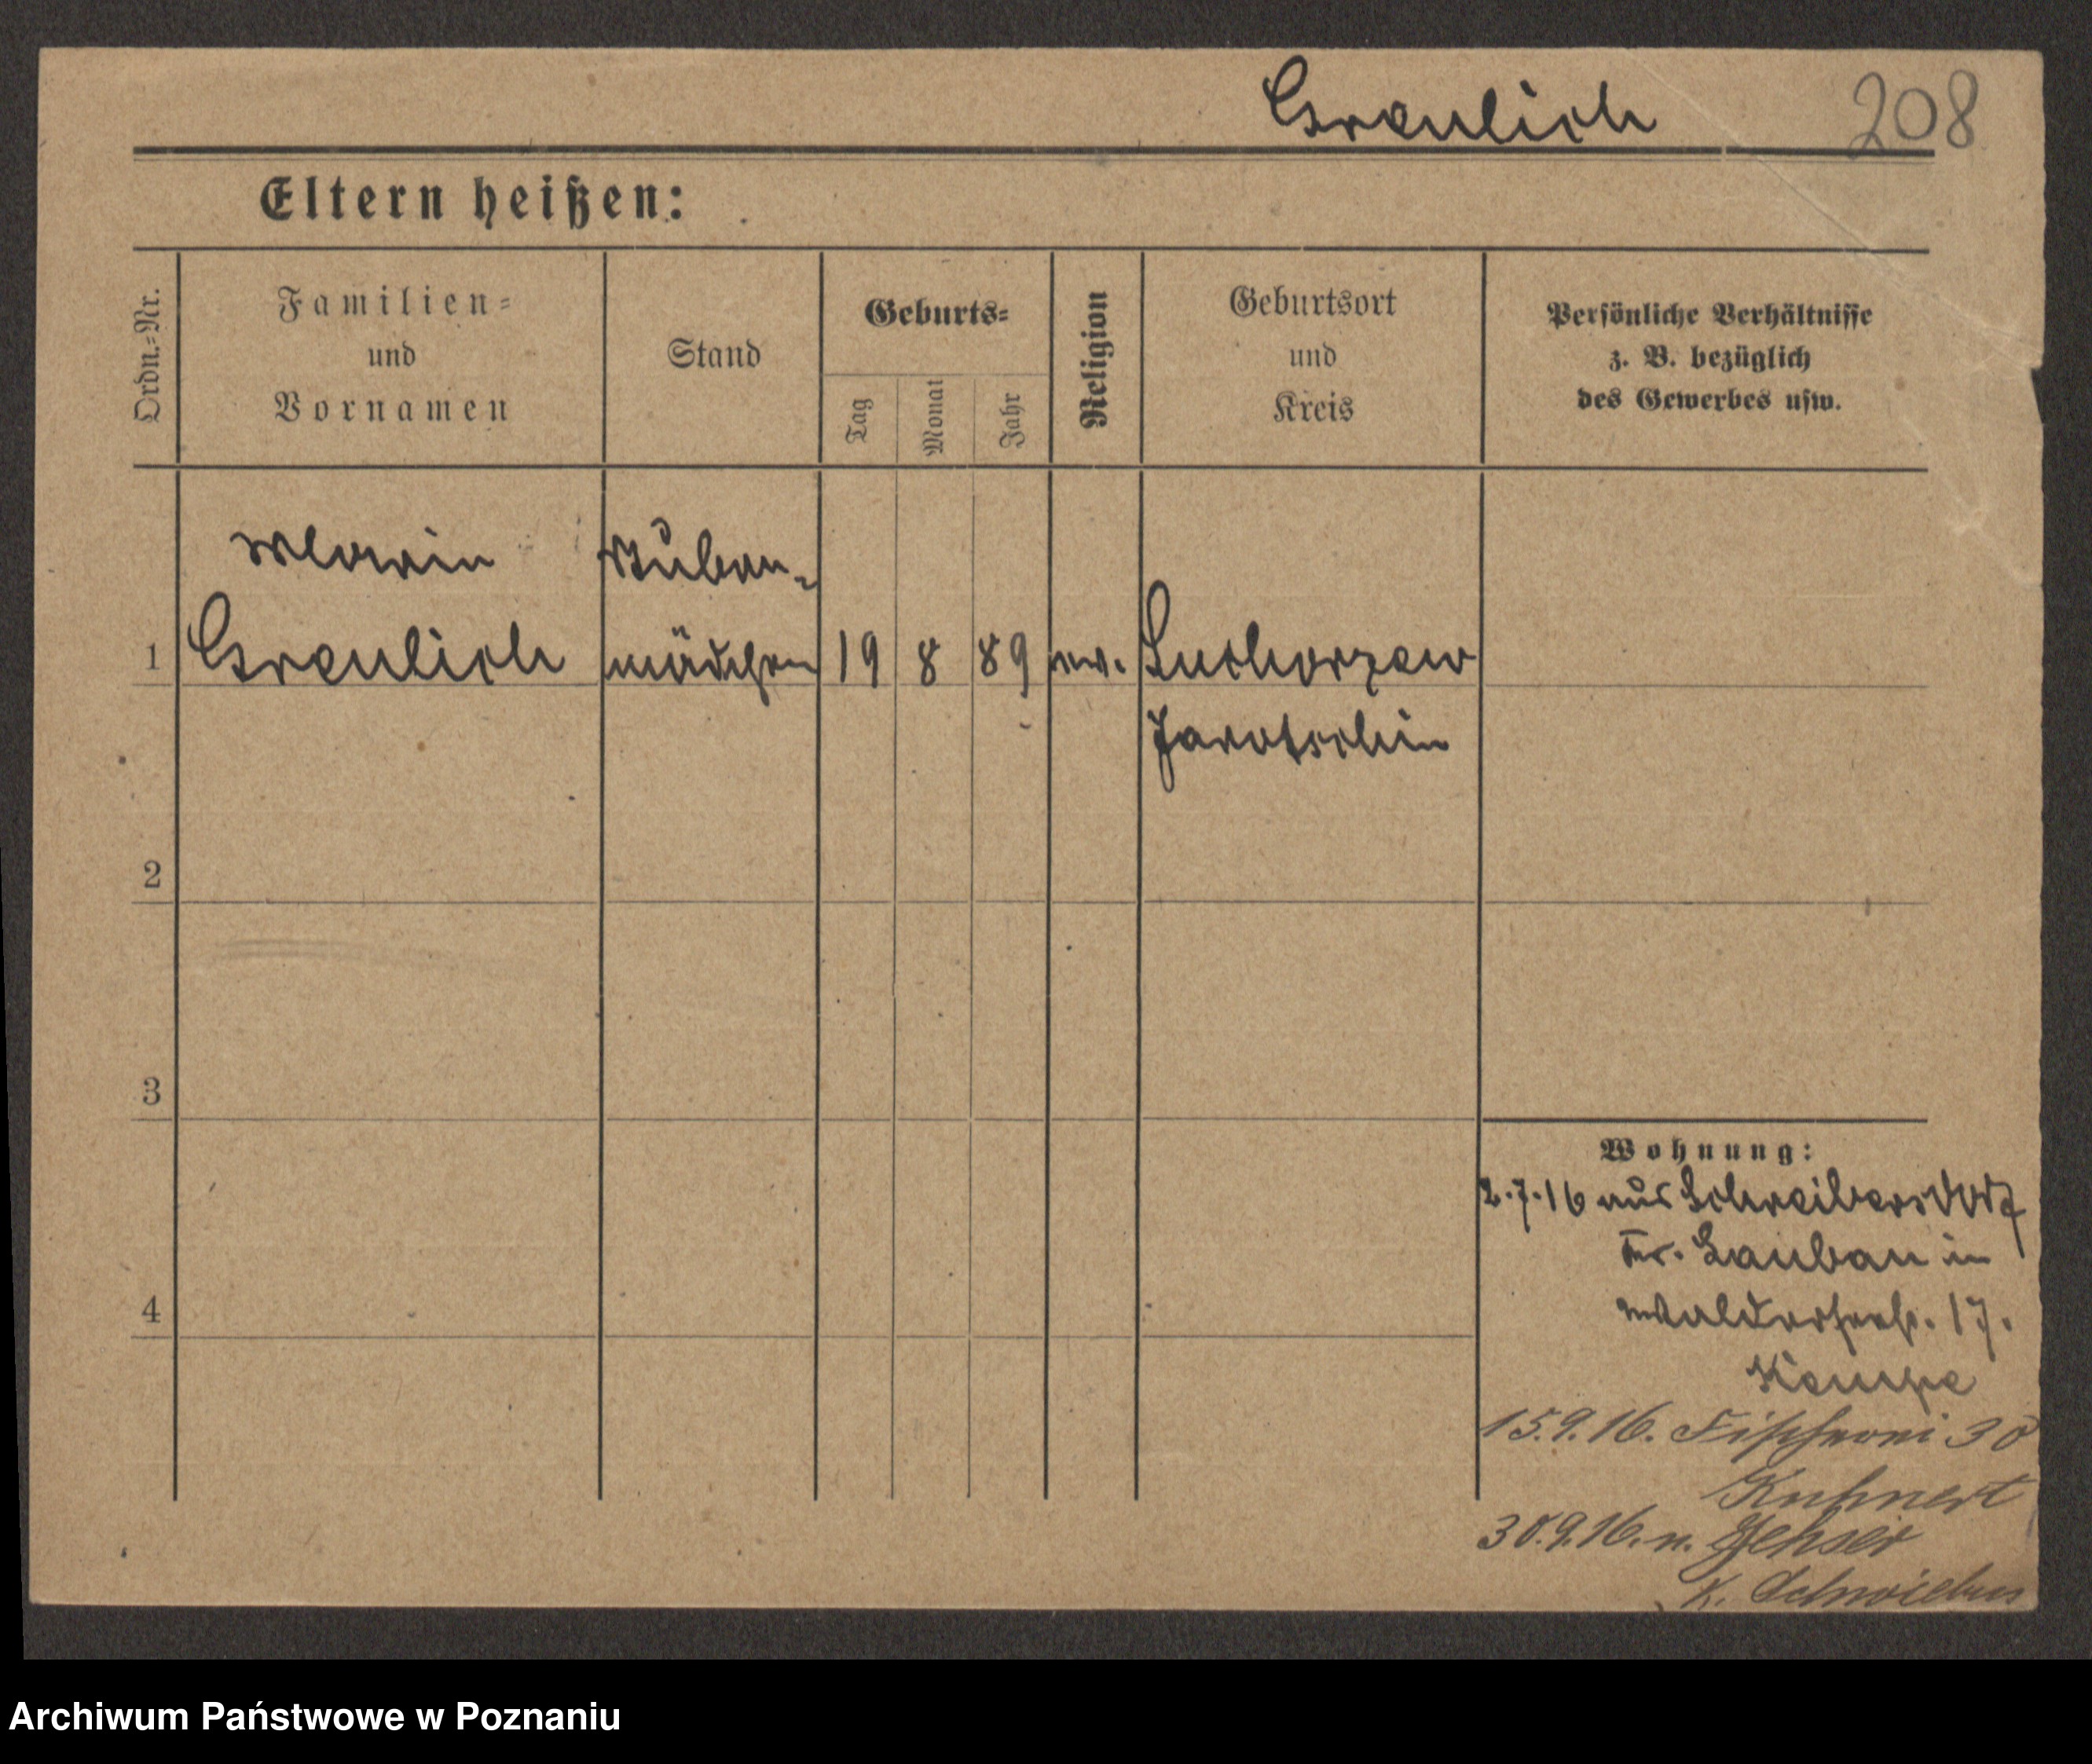 Greulich 208
Eltern heißen:
Ordn.-Nr.
Familien-
und
Vornamen
Stand
Geburts-
Tag
Monat
Jahr
Religion
Geburtsort
und
Kreis
Persönliche Verhältnisse
z. B. bezüglich
des Gewerbes usw.
Maria Stuben-
1 Greulich mädchen 19 8 89 ev. Suchorzew
Jarotschin
2
3
4
Wohnung:
2.7.16 aus Schreibersdorf
Kr. Lauban in
Walderseestr. 17.
Kempe
15.9.16. Fischerei 30
Kuhnert
30.9.16. n.
K. Schwiebus
Archiwum Państwowe w Poznaniu